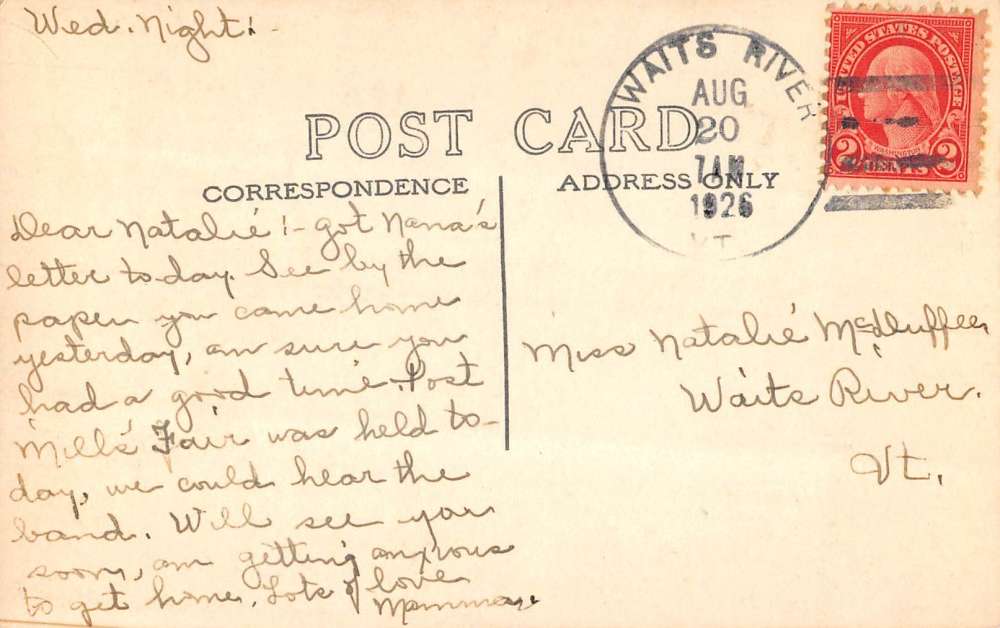 Wed. Night:-
POST CARD
CORRESPONDENCE
ADDRESS ONLY
WAITS RIVER
AUG
20
7 AM
1926
VT.
UNITED STATES POSTAGE
WASHINGTON
2 CENTS 2
Dear Natalie :- got Nana's
letter to-day. See by the
paper you came home
yesterday, am sure you
had a good time. Post
Mills Fair was held to-
day, we could hear the
band. Will see you
soon, am getting anxious
to get home. Lots of love
Mamma.
Miss Natalie McDuffee
Waits River.
Vt.